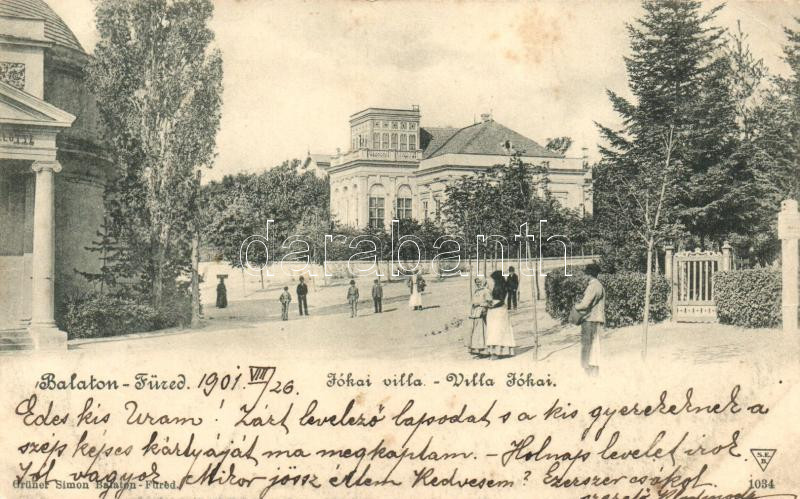 darabanth
Balaton-Füred. 1901 VIII/26.
Jókai villa. - Villa Jókai.
Edes kis Uram! Zárt levelező lapodat s a kis gyerekeknek a
szép képes kártyáját ma megkaptam. - Holnap levelet irok.
Jól vagyok. Mikor jössz értem Kedvesem? Ezerszer csókol.
S.E.B.
Grüner Simon Balaton-Füred.
1034
szerető